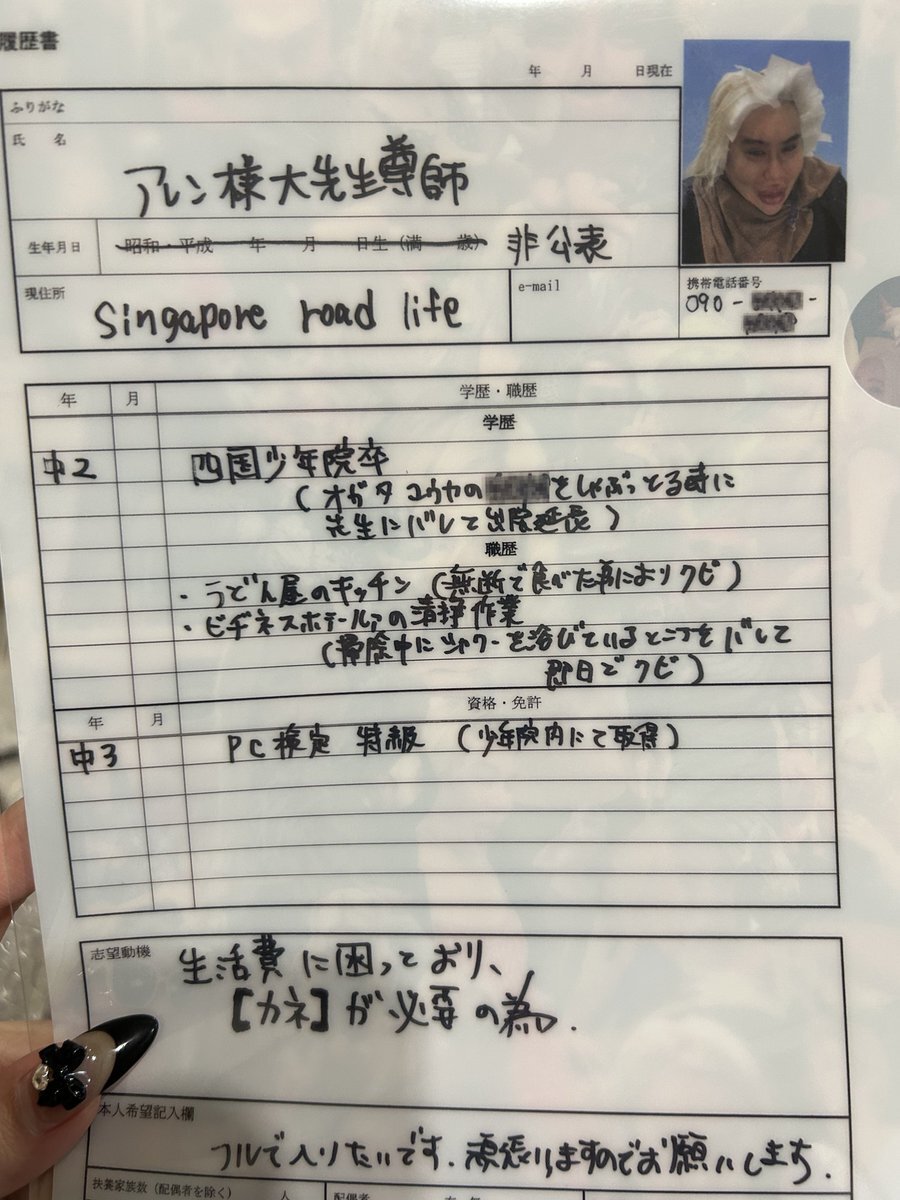 履歴書
年 月 日現在
ふりがな
氏 名
アレン様大先生尊師
生年月日 昭和・平成 年 月 日生(満 歳) 非公表
現住所
singapore road life
e-mail
携帯電話番号
090 -
-
年 月 学歴・職歴
学歴
中2 四国少年院卒
(オガタユウカの をしゃぶっとる時に
先生にバレて出院延長)
職歴
・うどん屋のキッチン (無断で食べた事によりクビ)
・ビヂネスホテールァの清掃作業
(掃除中にシャワーを浴びているところをバレて
即日でクビ)
年 月 資格・免許
中3 PC検定 特級 (少年院内にて取得)
志望動機
生活費に困っており、
[カネ]が必要の為.
本人希望記入欄
フルで入りたいです.頑張りますのでお願いします.
扶養家族数(配偶者を除く) 人
配偶者